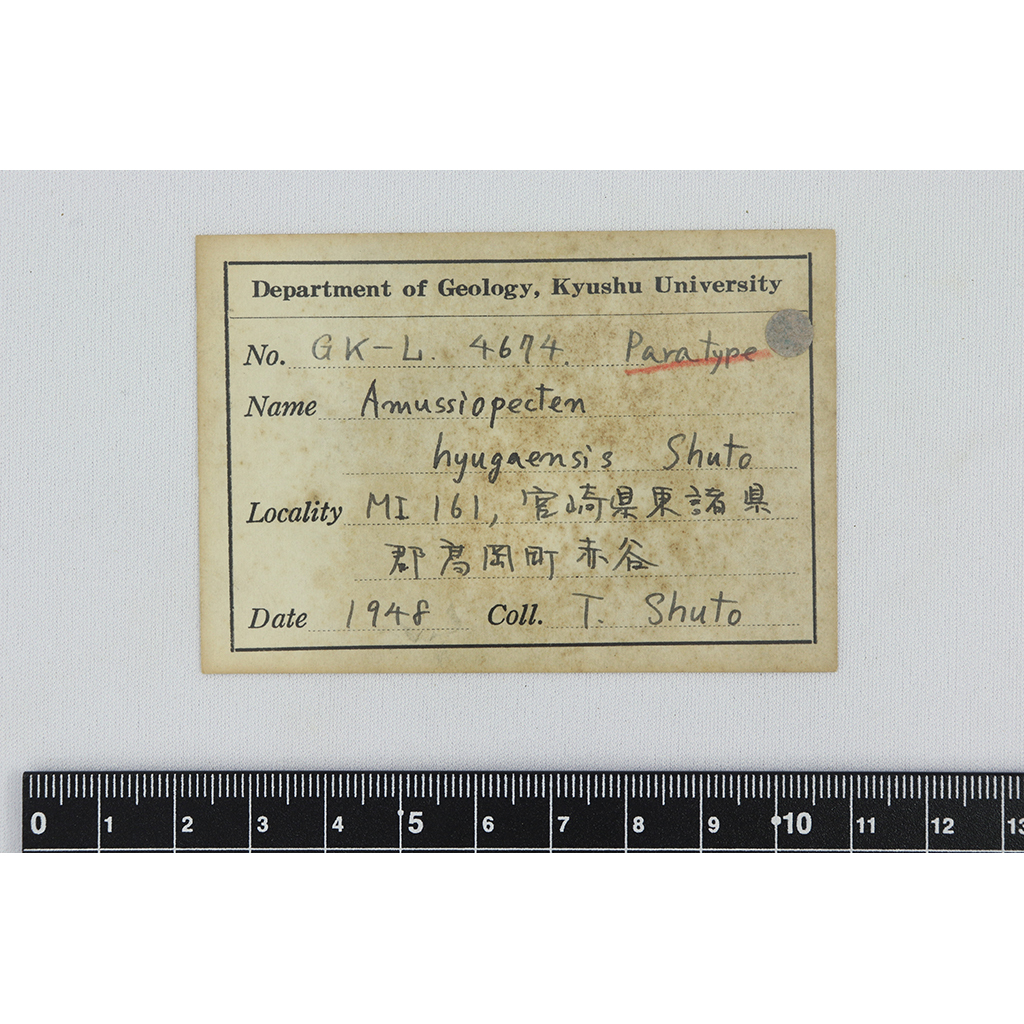 Department of Geology, Kyushu University
No. GK-L. 4674. Paratype
Name Amussiopecten
hyugaensis Shuto
Locality MI 161, 宮崎県東諸県
郡高岡町赤谷
Date 1948 Coll. T. Shuto
0 1 2 3 4 5 6 7 8 9 10 11 12 13